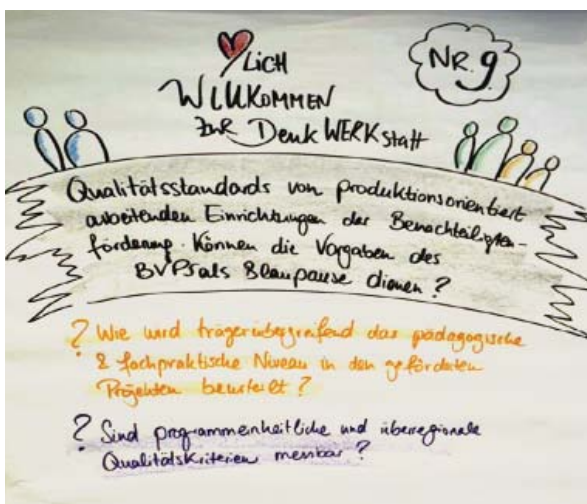 LICH
WILLKOMMEN
NR. 9
ZUR DenkWERKstatt
Qualitätsstandards von produktionsorientiert
arbeitenden Einrichtungen der Benachteiligten-
förderung. Können die Vorgaben des
BVPS als Blaupause dienen?
? Wie wird trägerübergreifend das pädagogische
& fachpraktische Niveau in den geförderten
Projekten beurteilt?
? Sind programmeinheitliche und überregionale
Qualitätskriterien messbar?